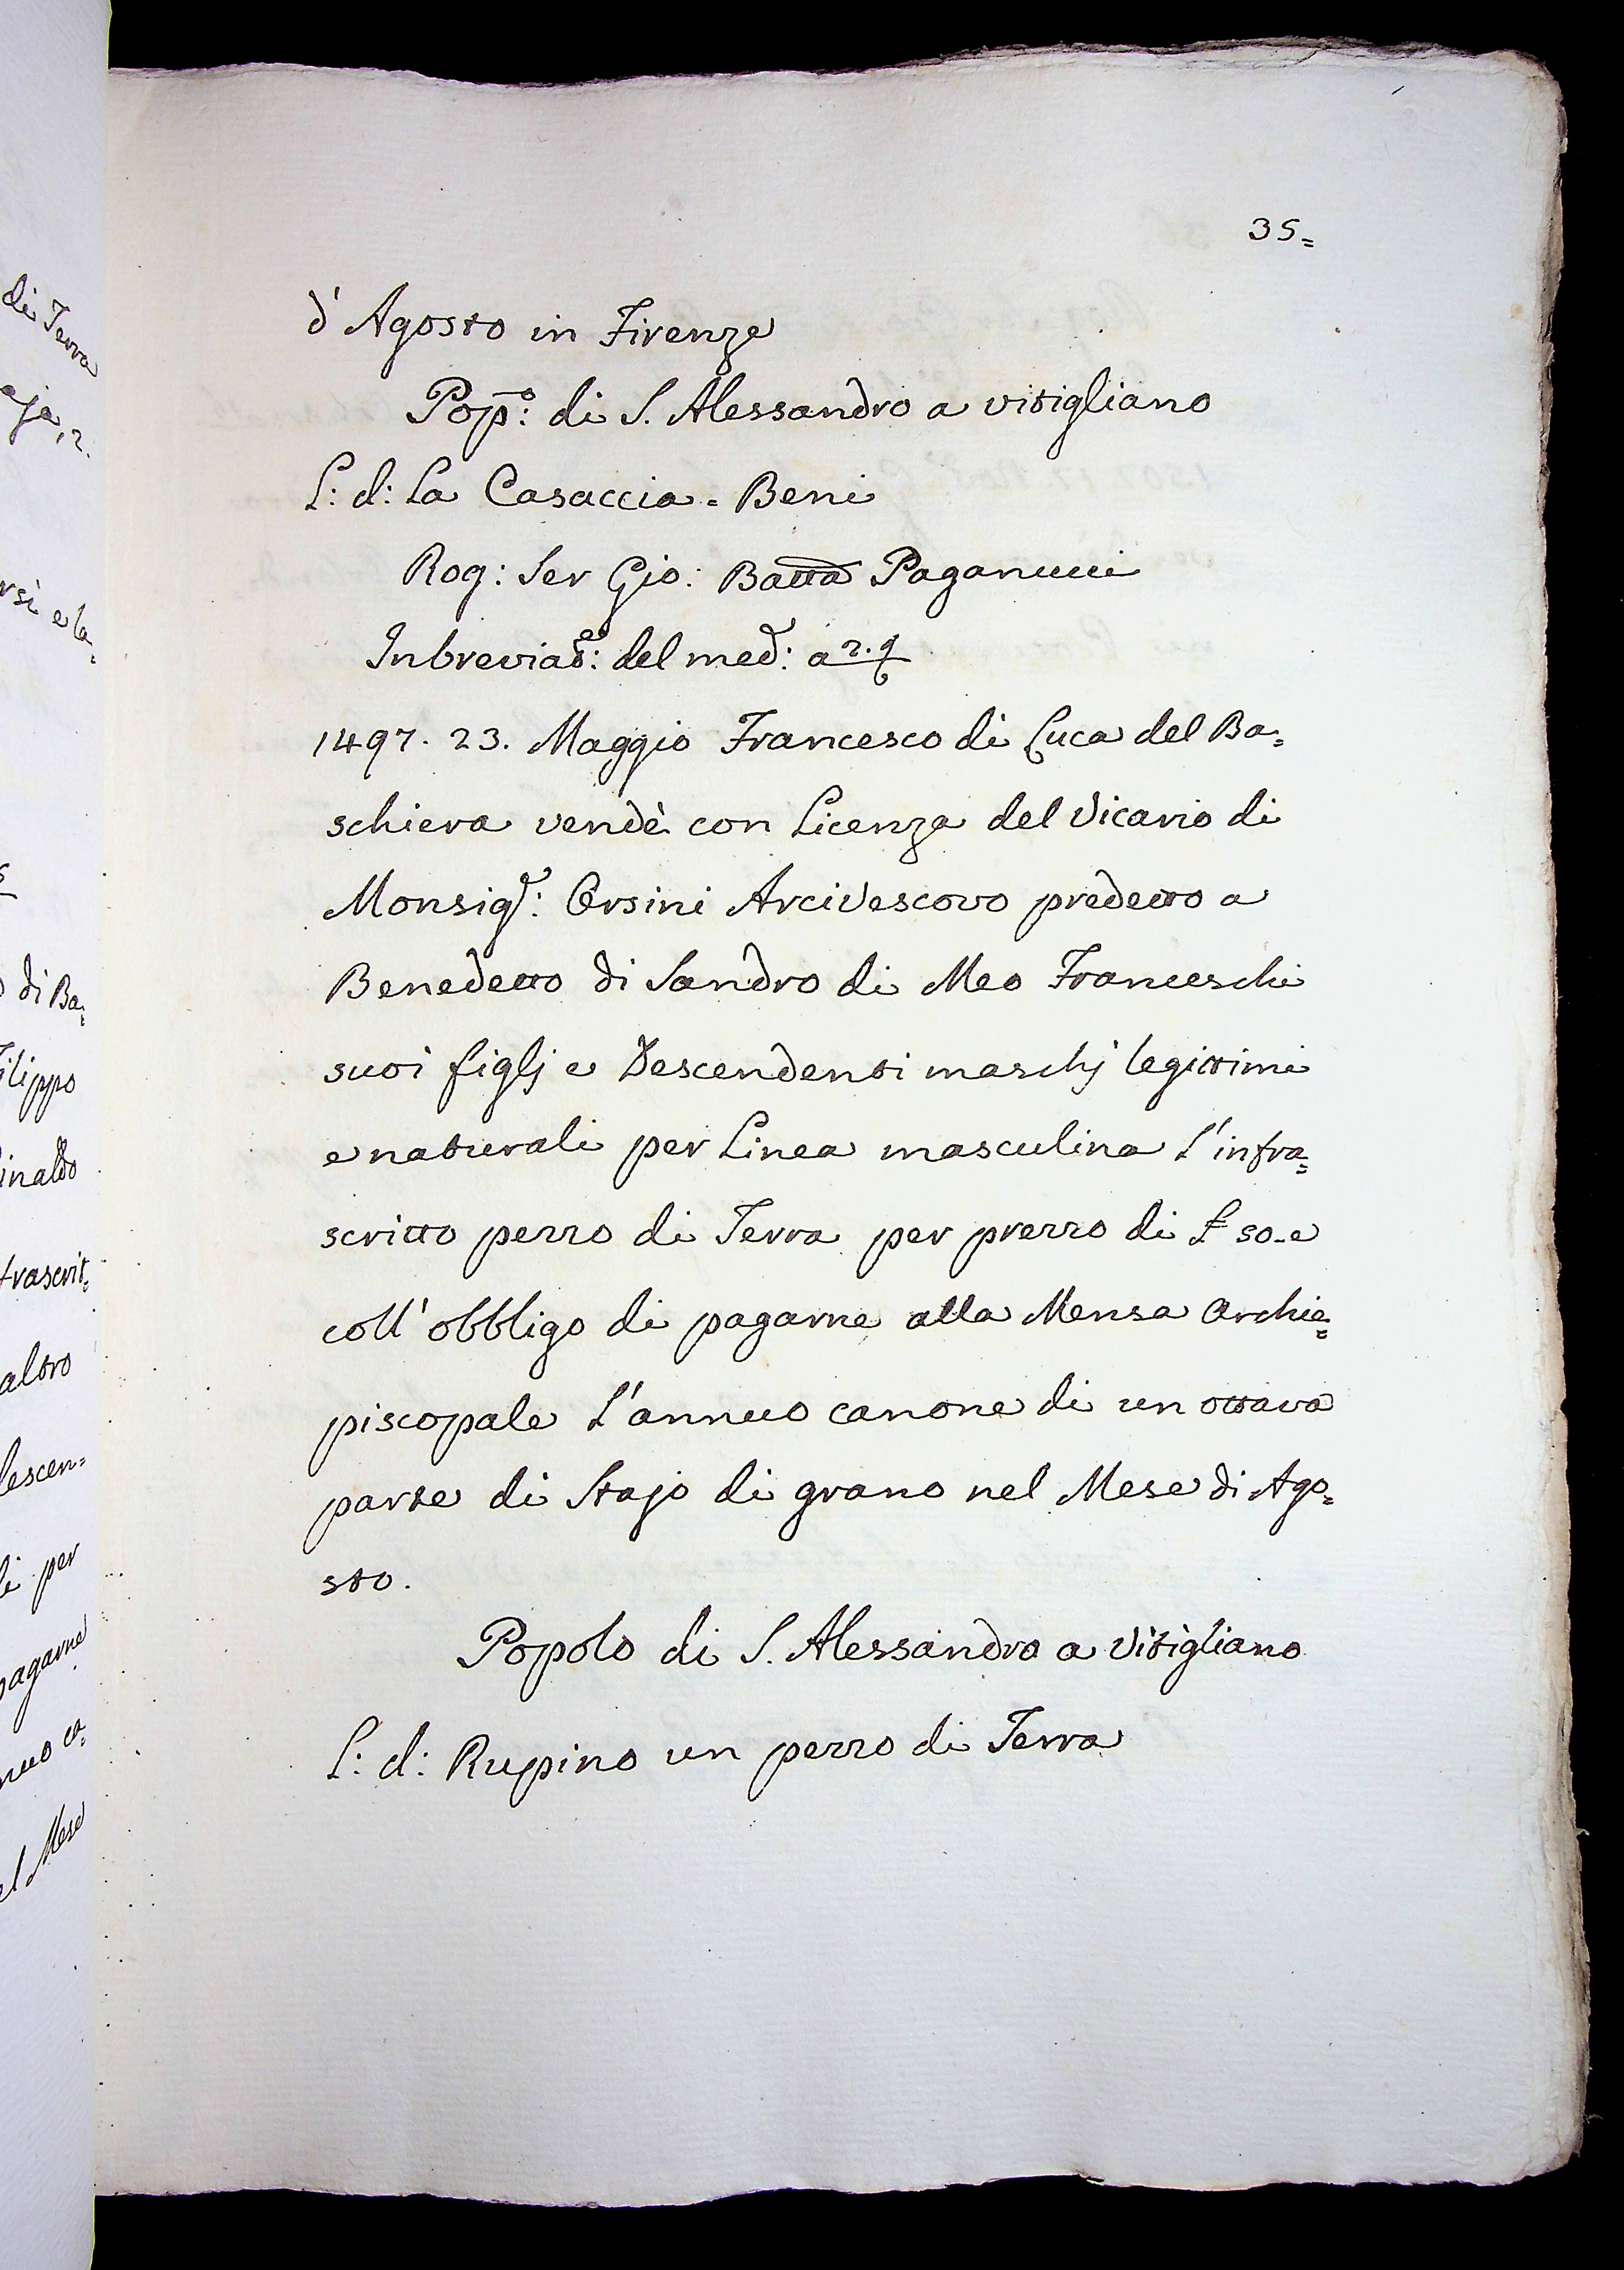 di Terra
aja, 2.
rsi e la=
di Ba=
Filippo
inaldo
frascrit=
altro
descen=
li per
pagarne
nuo ca=
el Mese
35=
d'Agosto in Firenze
Pop:º di S. Alessandro a vitigliano
L: d: La Casaccia = Beni
Rog: Ser Gio: Batta Paganucci
Inbreviat:e del med: a 2. 9
1497. 23. Maggio Francesco di Luca del Ba=
schiera vendè con Licenza del Vicario di
Monsig:r Orsini Arcivescovo predetto a
Benedetto di Sandro di Meo Franceschi
suoi figlj e Descendenti maschj legittimi
e naturali per Linea masculina l'infra=
scritto pezzo di Terra per prezzo di £ 50. e
coll'obbligo di pagarne alla Mensa Archie=
piscopale l'annuo canone di un ottava
parte di Stajo di grano nel Mese di Ago=
sto.
Popolo di S. Alessandro a Vitigliano
L: d: Rupino un pezzo di Terra